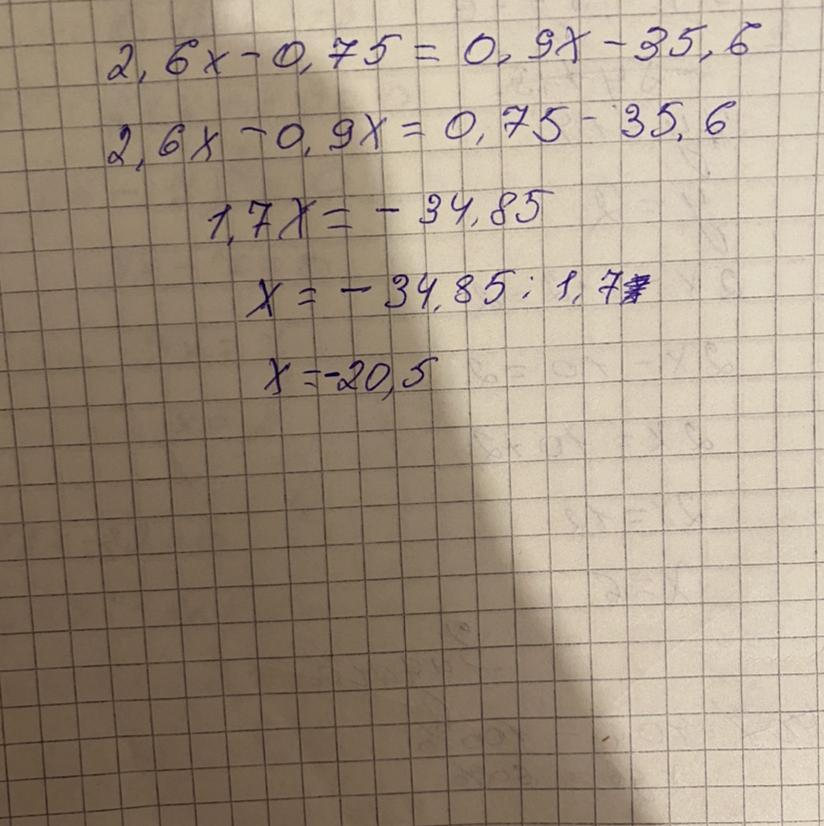 2,6x-0,75=0,9x-35,6
2,6x-0,9x=0,75-35,6
1,7x=-34,85
x=-34,85:1,7
x=-20,5